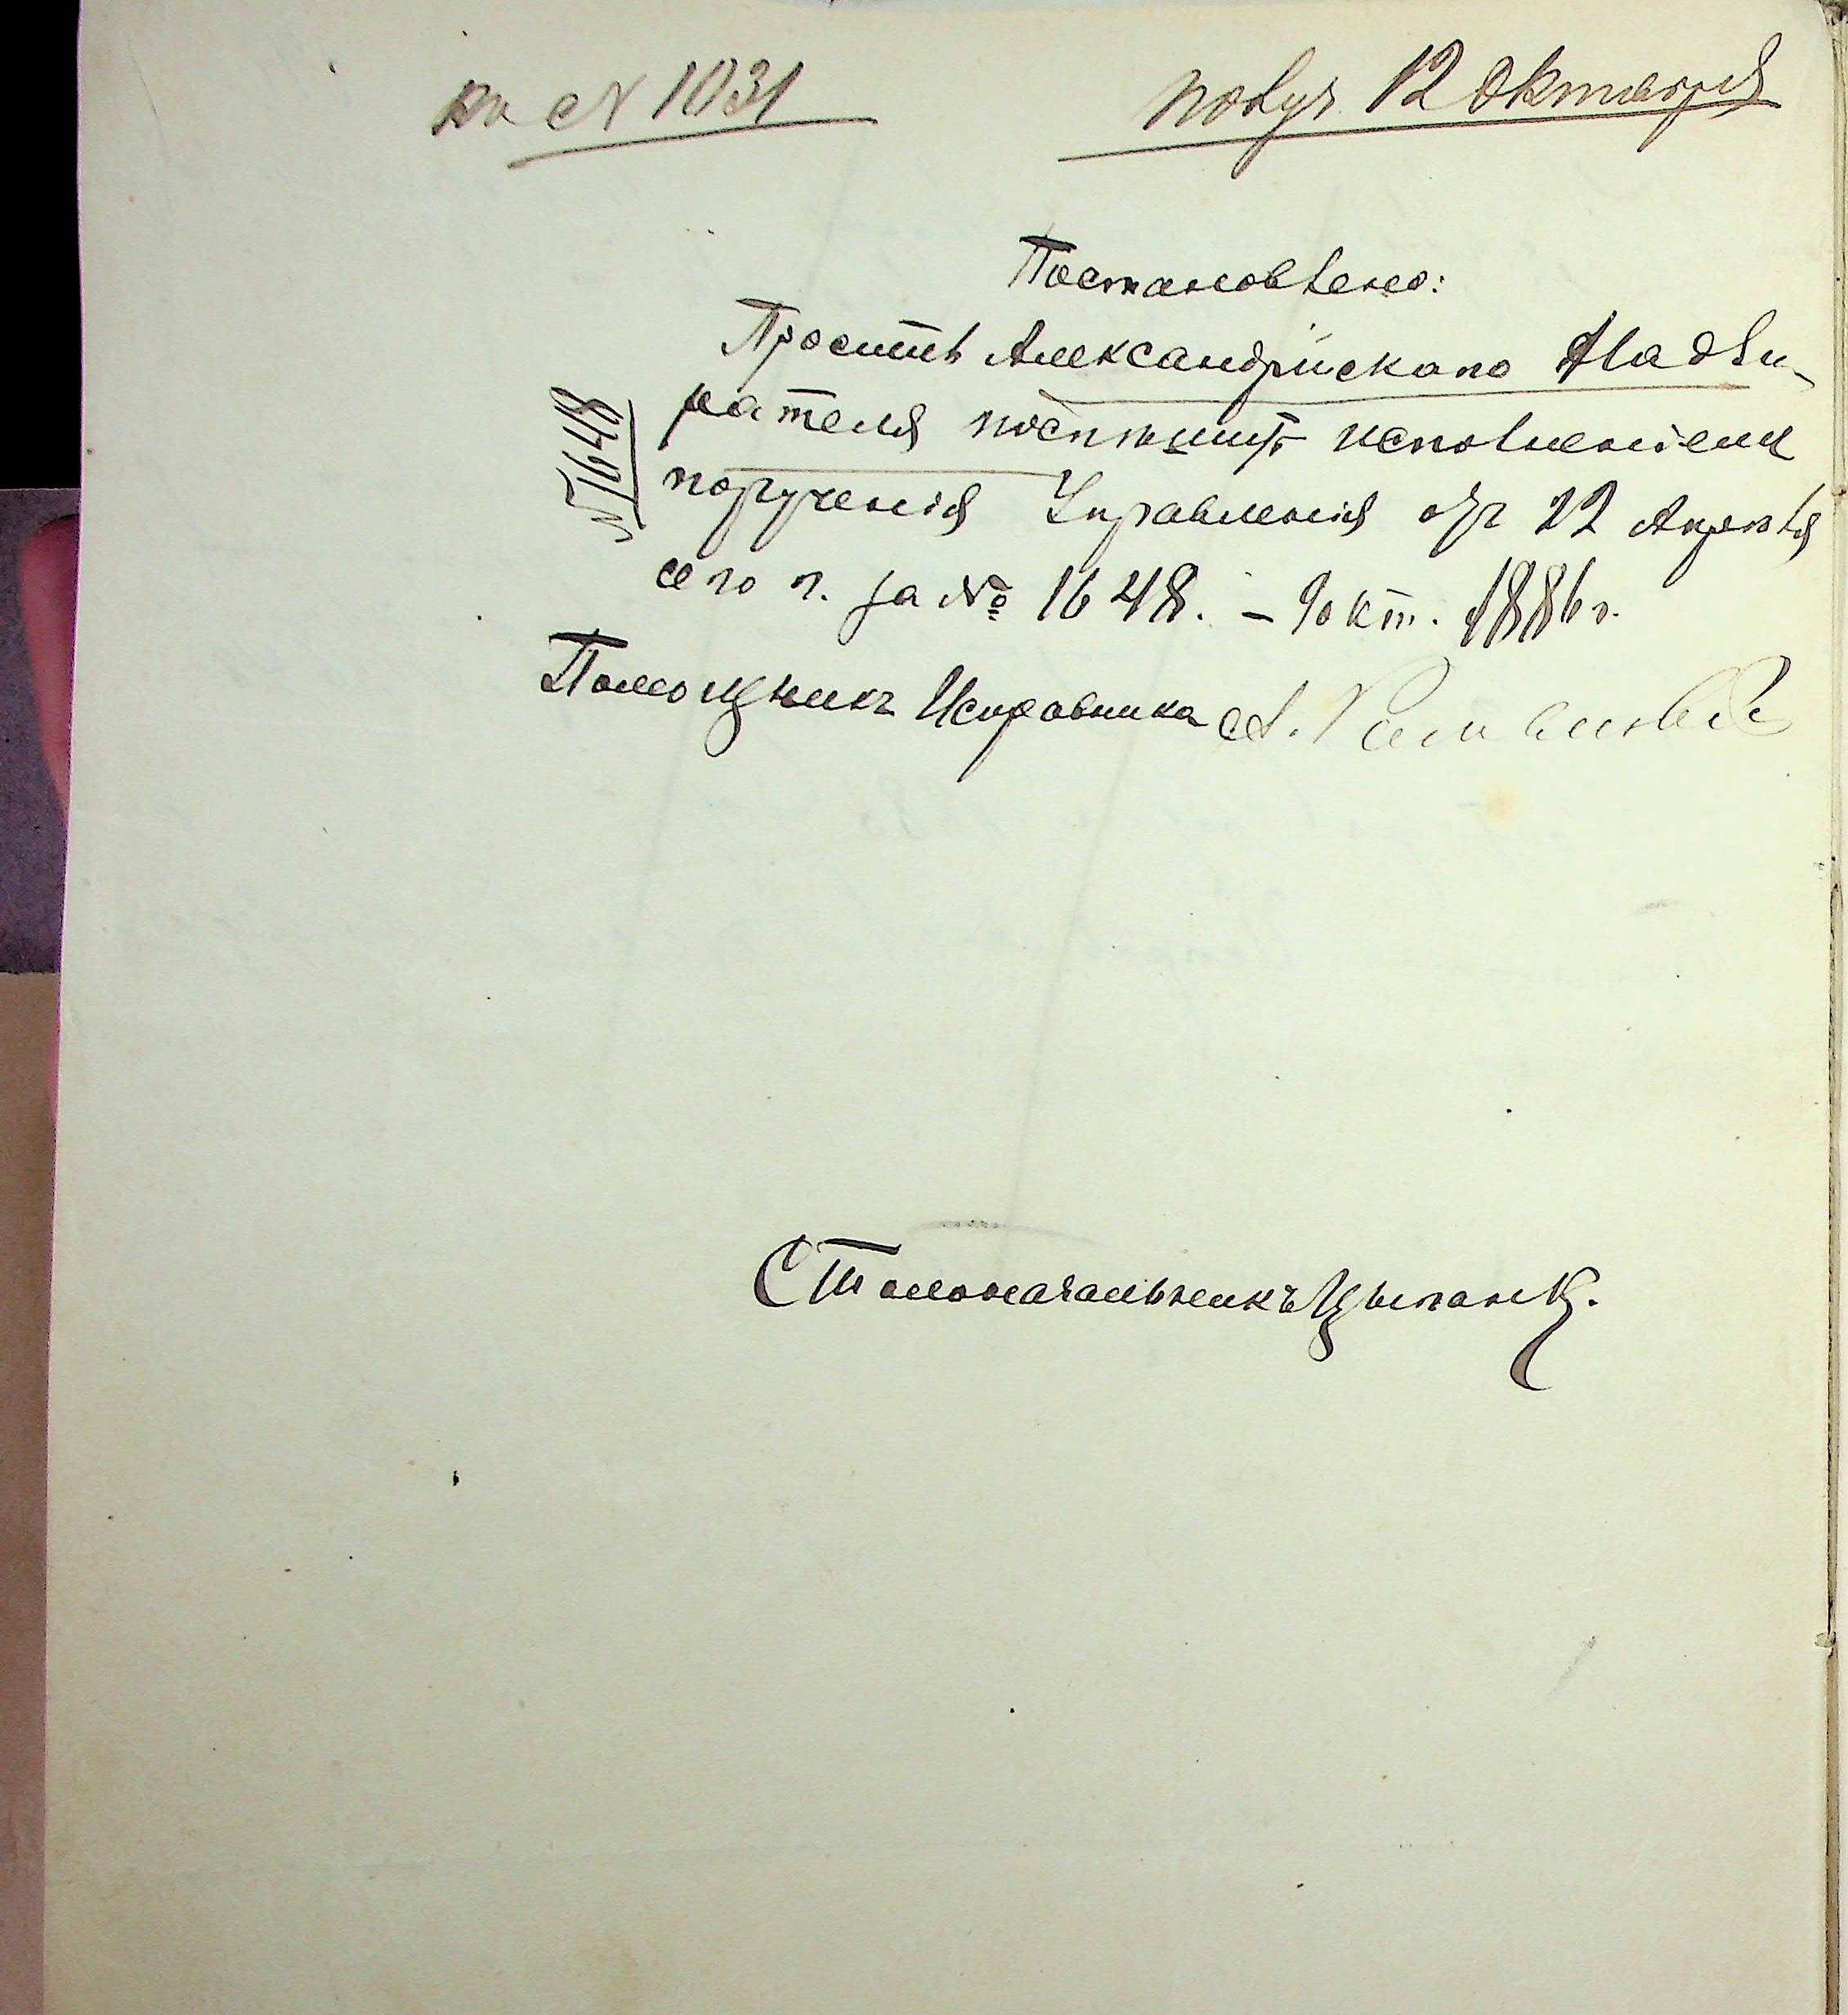 къ № 1031
получ. 12 Октября
Постановлено:
Просить Александрійскаго Надзи-
рателя поспѣшить исполненіемъ
порученія Управленія отъ 22 Апрѣля
сего г. за № 1648. – 9 окт. 1886 г.
№ 1648
Помощникъ Исправника А.
Столоначальникъ Цыганк.